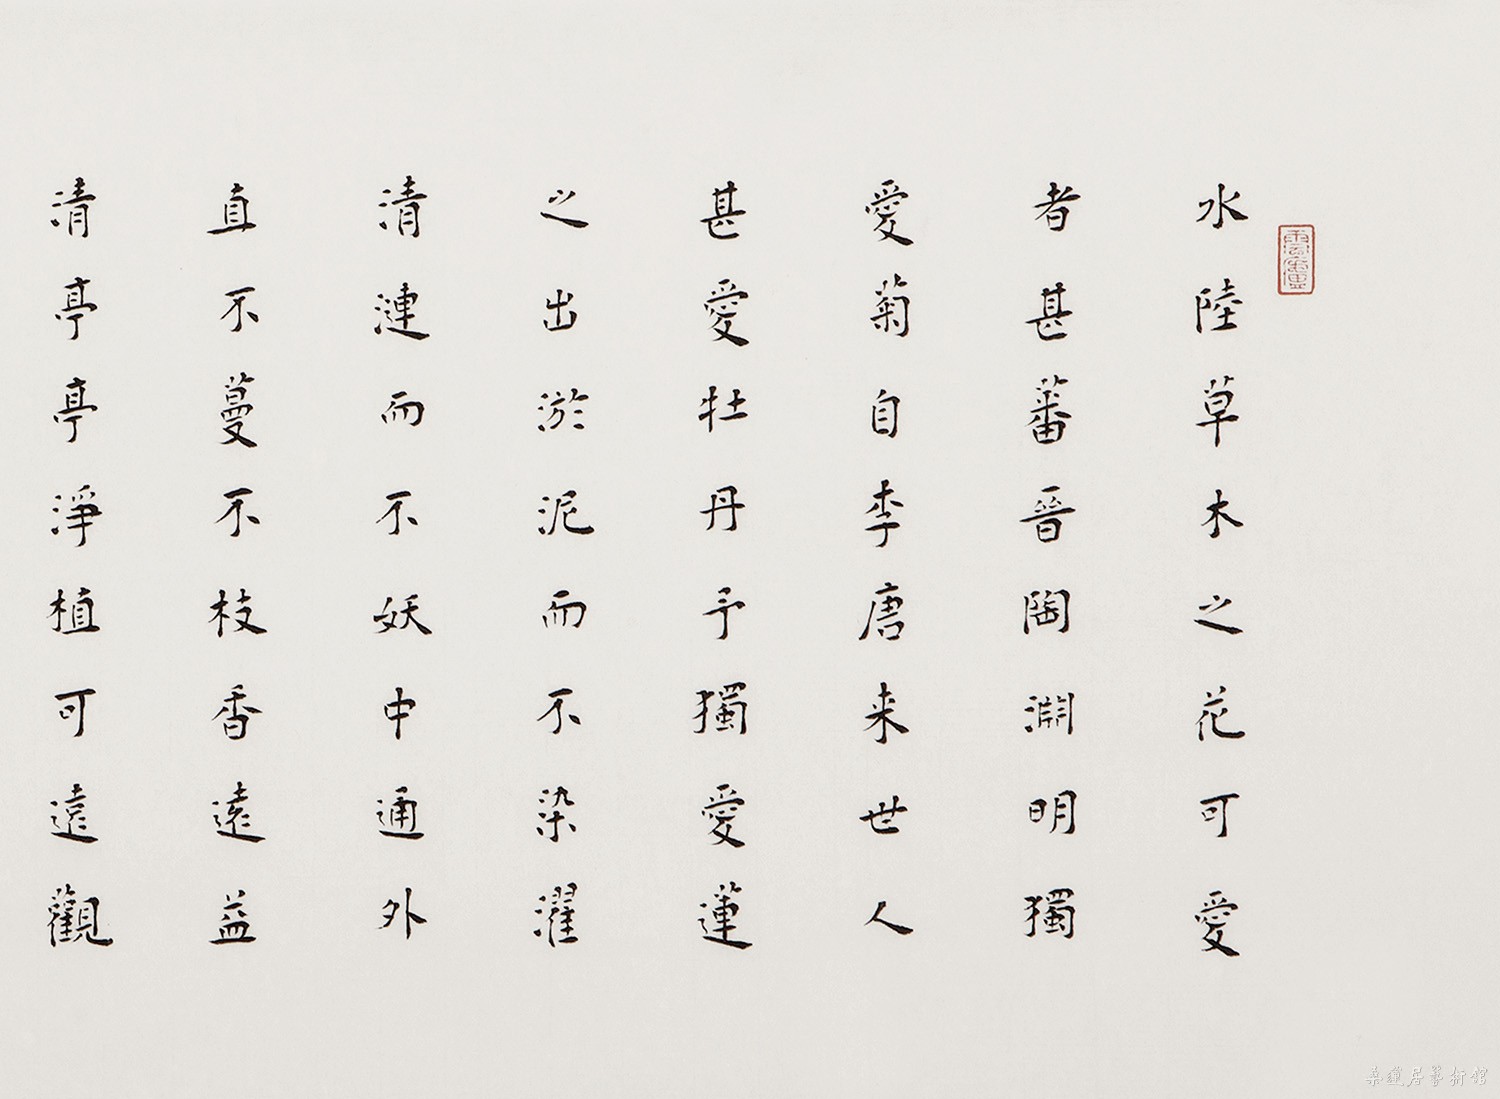 水陸草木之花可愛
者甚蕃晉陶淵明獨
愛菊自李唐来世人
甚愛牡丹予獨愛蓮
之出淤泥而不染濯
清漣而不妖中通外
直不蔓不枝香遠益
清亭亭淨植可遠觀
桑蓮居藝術館